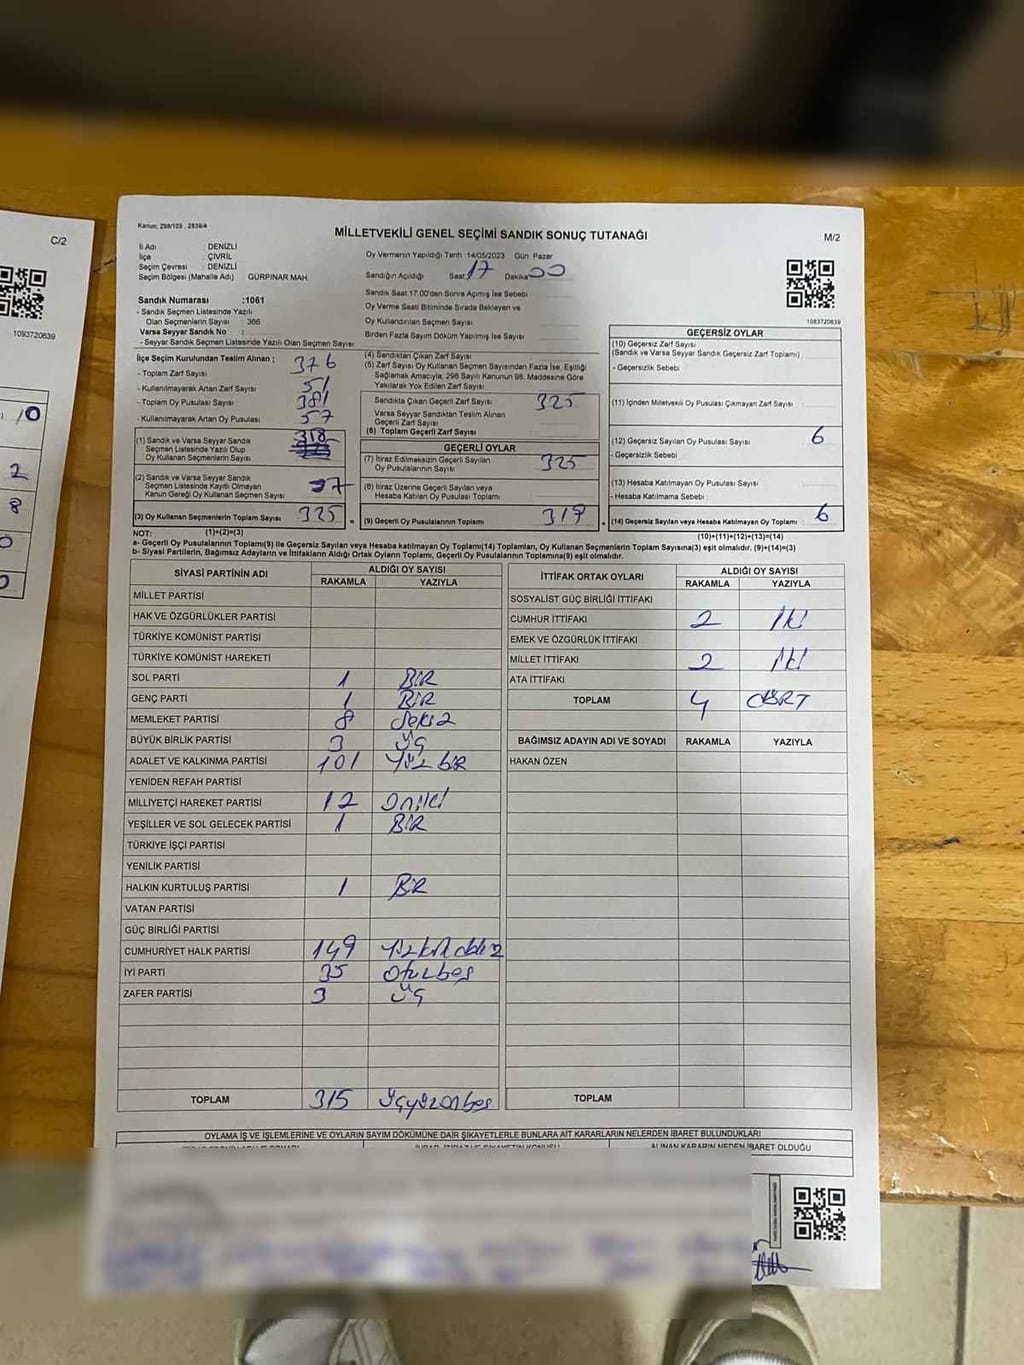 C/2
1093720639
10
2
8
0
0
Kanun; 298/105 , 2839/4
MİLLETVEKİLİ GENEL SEÇİMİ SANDIK SONUÇ TUTANAĞI
M/2
İl Adı : DENİZLİ
İlçe : ÇİVRİL
Seçim Çevresi : DENİZLİ
Seçim Bölgesi (Mahalle Adı) : GÜRPINAR MAH
Oy Vermenin Yapıldığı Tarih :14/05/2023 Gün: Pazar
Sandığın Açıldığı Saat: 17 Dakika: 00
Sandık Saat 17:00'den Sonra Açımış İse Sebebi
Oy Verme Saati Bitiminde Sırada Bekleyen ve
Oy Kullandırılan Seçmen Sayısı
Birden Fazla Sayım Döküm Yapılmış İse Sayısı
1083720639
Sandık Numarası :1061
- Sandık Seçmen Listesinde Yazılı
Olan Seçmenlerin Sayısı : 366
Varsa Seyyar Sandık No :
- Seyyar Sandık Seçmen Listesinde Yazılı Olan Seçmen Sayısı:
İlçe Seçim Kurulundan Teslim Alınan ;
- Toplam Zarf Sayısı 376
- Kullanılmayarak Artan Zarf Sayısı 51
- Toplam Oy Pusulası Sayısı 381
- Kullanılmayarak Artan Oy Pusulası 57
(1) Sandık ve Varsa Seyyar Sandık
Seçmen Listesinde Yazılı Olup
Oy Kullanan Seçmenlerin Sayısı 318
(2) Sandık ve Varsa Seyyar Sandık
Seçmen Listesinde Kayıtlı Olmayan
Kanun Gereği Oy Kullanan Seçmen Sayısı 7
(3) Oy Kullanan Seçmenlerin Toplam Sayısı 325 =
(1)+(2)=(3)
(4) Sandıktan Çıkan Zarf Sayısı
(5) Zarf Sayısı Oy Kullanan Seçmen Sayısından Fazla İse, Eşitliği
Sağlamak Amacıyla; 298 Sayılı Kanunun 98. Maddesine Göre
Yakılarak Yok Edilen Zarf Sayısı
Sandıkta Çıkan Geçerli Zarf Sayısı 325
Varsa Seyyar Sandıktan Teslim Alınan
Geçerli Zarf Sayısı
(6) Toplam Geçerli Zarf Sayısı
GEÇERLİ OYLAR
(7) İtiraz Edilmeksizin Geçerli Sayılan
Oy Pusulalarının Sayısı 325
(8) İtiraz Üzerine Geçerli Sayılan veya
Hesaba Katılan Oy Pusulası Toplamı
(9) Geçerli Oy Pusulalarının Toplamı 319
GEÇERSİZ OYLAR
(10) Geçersiz Zarf Sayısı
(Sandık ve Varsa Seyyar Sandık Geçersiz Zarf Toplamı)
- Geçersizlik Sebebi
(11) İçinden Milletvekili Oy Pusulası Çıkmayan Zarf Sayısı
(12) Geçersiz Sayılan Oy Pusulası Sayısı 6
- Geçersizlik Sebebi
(13) Hesaba Katılmayan Oy Pusulası Sayısı
- Hesaba Katılmama Sebebi
(14) Geçersiz Sayılan veya Hesaba Katılmayan Oy Toplamı : 6
(10)+(11)+(12)+(13)=(14)
NOT:
a- Geçerli Oy Pusulalarının Toplamı(9) ile Geçersiz Sayılan veya Hesaba katılmayan Oy Toplamı(14) Toplamları, Oy Kullanan Seçmenlerin Toplam Sayısına(3) eşit olmalıdır. (9)+(14)=(3)
b- Siyasi Partilerin, Bağımsız Adayların ve İttifakların Aldığı Ortak Oyların Toplamı, Geçerli Oy Pusulalarının Toplamına(9) eşit olmalıdır.
SİYASİ PARTİNİN ADI ALDIĞI OY SAYISI
RAKAMLA YAZIYLA
MİLLET PARTİSİ
HAK VE ÖZGÜRLÜKLER PARTİSİ
TÜRKİYE KOMÜNİST PARTİSİ
TÜRKİYE KOMÜNİST HAREKETİ
SOL PARTİ 1 BİR
GENÇ PARTİ 1 BİR
MEMLEKET PARTİSİ 8 Sekiz
BÜYÜK BİRLİK PARTİSİ 3 Üç
ADALET VE KALKINMA PARTİSİ 101 Yüz bir
YENİDEN REFAH PARTİSİ
MİLLİYETÇİ HAREKET PARTİSİ 12 Oniki
YEŞİLLER VE SOL GELECEK PARTİSİ 1 BİR
TÜRKİYE İŞÇİ PARTİSİ
YENİLİK PARTİSİ
HALKIN KURTULUŞ PARTİSİ 1 BİR
VATAN PARTİSİ
GÜÇ BİRLİĞİ PARTİSİ
CUMHURİYET HALK PARTİSİ 149 Yüzkırkdokuz
İYİ PARTİ 35 Otuzbeş
ZAFER PARTİSİ 3 Üç
TOPLAM 315 Üçyüzonbeş
İTTİFAK ORTAK OYLARI ALDIĞI OY SAYISI
RAKAMLA YAZIYLA
SOSYALİST GÜÇ BİRLİĞİ İTTİFAKI
CUMHUR İTTİFAKI 2 İki
EMEK VE ÖZGÜRLÜK İTTİFAKI
MİLLET İTTİFAKI 2 İki
ATA İTTİFAKI
TOPLAM 4 DÖRT
BAĞIMSIZ ADAYIN ADI VE SOYADI RAKAMLA YAZIYLA
HAKAN ÖZEN
TOPLAM
OYLAMA İŞ VE İŞLEMLERİNE VE OYLARIN SAYIM DÖKÜMÜNE DAİR ŞİKAYETLERLE BUNLARA AİT KARARLARIN NELERDEN İBARET BULUNDUKLARI
ALINAN KARARIN NEDEN İBARET OLDUĞU